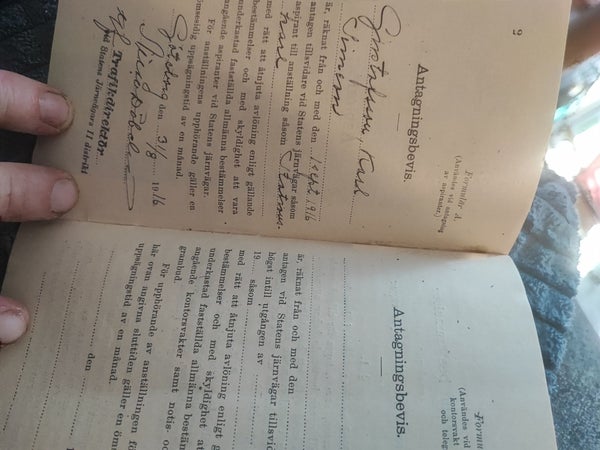 9
Formulär A.
(Användes vid antagning
av aspiranter)
Antagningsbevis.
Gustafsson, Karl
är, räknat från och med den 1 sept 1916
antagen tillsvidare vid Statens järnvägar såsom
aspirant till anställning såsom
med rätt att åtnjuta avlöning enligt gällande
bestämmelser och med skyldighet att vara
underkastad fastställda allmänna bestämmelser
angående aspiranter vid Statens järnvägar.
För anställningens upphörande gäller en
ömsesidig uppsägningstid av en månad.
den 31/8 1916
Trafikdirektör
vid Statens Järnvägars II distrikt
Formu
(Användes vid
kontorsvakt
och teleg
Antagningsbevis.
är, räknat från och med den
antagen vid Statens järnvägar tillsvid
högst intill utgången av
19 såsom
med rätt att åtnjuta avlöning enligt g
bestämmelser och med skyldighet at
underkastad fastställda allmänna bestäm
angående kontorsvakter samt notis- oc
granbud.
För upphörande av anställningen fö
här ovan angivna sluttiden gäller en öms
uppsägningstid av en månad.
den